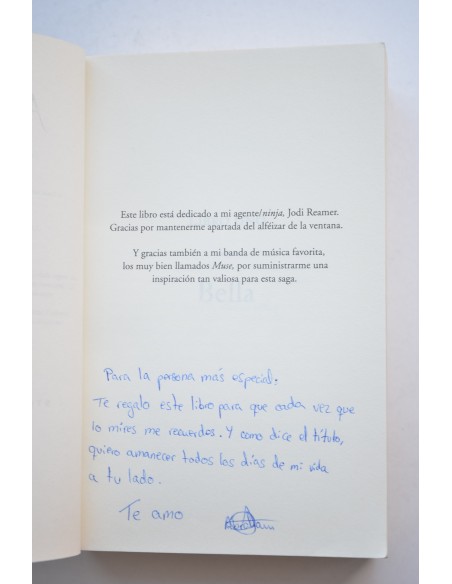 Este libro está dedicado a mi agente/ninja, Jodi Reamer.
Gracias por mantenerme apartada del alféizar de la ventana.
Y gracias también a mi banda de música favorita,
los muy bien llamados Muse, por suministrarme una
inspiración tan valiosa para esta saga.
Bella
Para la persona más especial:
Te regalo este libro para que cada vez que
lo mires me recuerdes. Y como dice el título,
quiero amanecer todos los días de mi vida
a tu lado.
Te amo